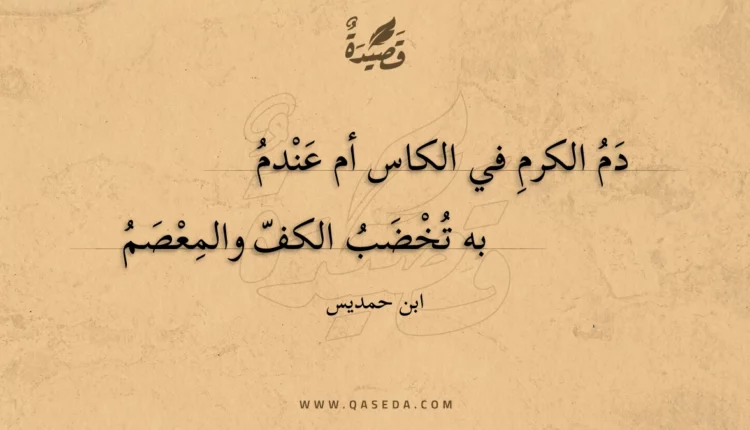 قَصِيدَةٌ
دَمُ الكرمِ في الكاس أم عَنْدمُ
به تُخْضَبُ الكفّ والمِعْصَمُ
ابن حمديس
WWW.QASEDA.COM